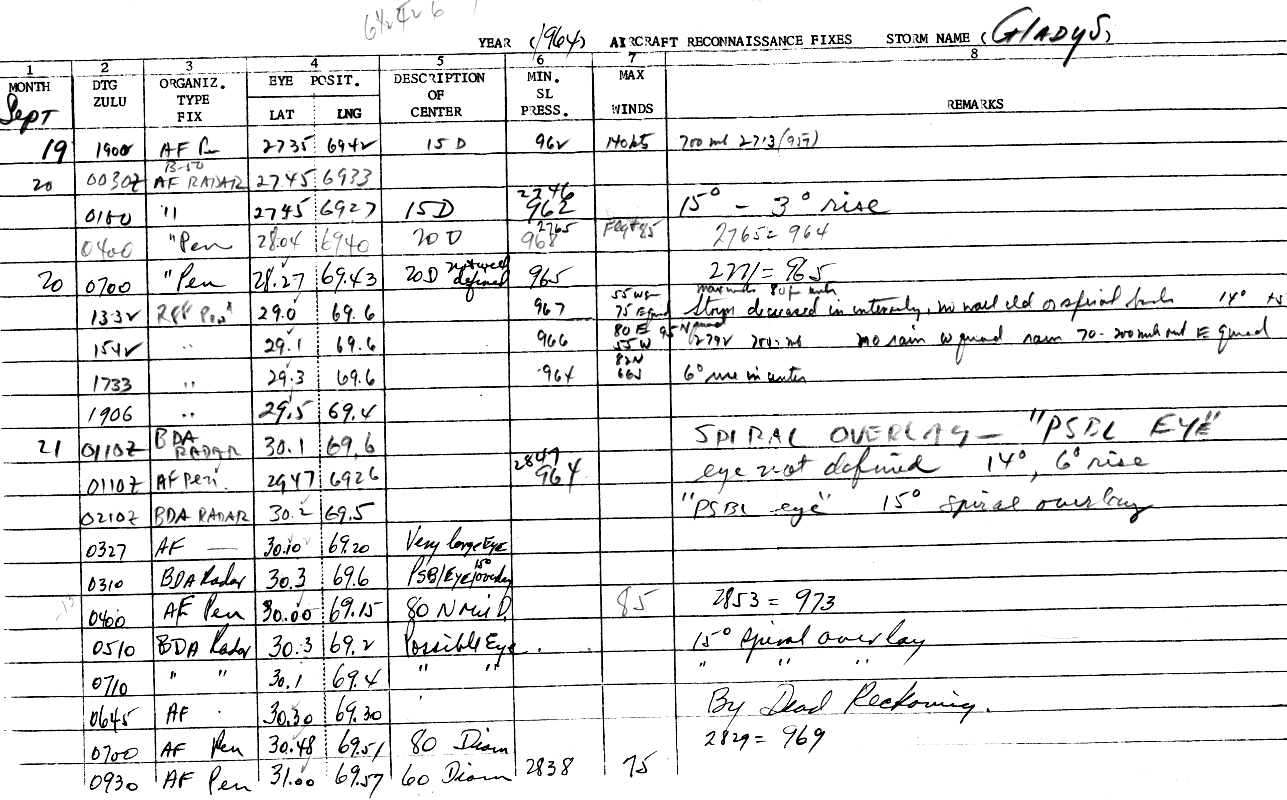 YEAR (1964) AIRCRAFT RECONNAISSANCE FIXES STORM NAME (GLADYS)
1 2 3 4 5 6 7 8
MONTH DTG ZULU ORGANIZ. TYPE FIX EYE POSIT. LAT LNG DESCRIPTION OF CENTER MIN. SL PRESS. MAX WINDS REMARKS
Sept
19 1900 AF Pen 2735 6942 15 D 962 140 kts 700 mb 2713 (959)
20 0030Z B-50 AF RADAR 2745 6933
0100 " 2745 6927 15D 2746 962 15° - 3° rise
0400 "Pen 28.04 6940 20 D 2765 968 85 2765 = 964
20 0700 "Pen 28.27 69.43 20D not well defined 965 2771 = 965
1332 29.0 69.6 967 55 W 75 E quad Storm decreased in intensity, no wall cld or spiral bands 14°
1542 " 29.1 69.6 966 80 E 55 W no rain W quad rain 70-200 mi out E quad
1733 " 29.3 69.6 964 82N 66S 6° rise in center
1906 " 29.5 69.4
21 0110Z BDA RADAR 30.1 69.6 SPIRAL OVERLAY - "PSBL EYE"
0110Z AF Pen. 2947 6926 2847 964 eye not defined 14°, 6° rise
0210Z BDA RADAR 30.2 69.5 "PSBL eye" 15° spiral overlay
0327 AF — 30.10 69.20 Very large Eye
0310 BDA Radar 30.3 69.6 PSBl Eye 15° overlay
0400 AF Pen 30.00 69.15 80 N Mi D. 85 2853 = 973
0510 BDA Radar 30.3 69.2 Possible Eye 15° Spiral overlay
0710 " " 30.1 69.4 " " " " "
0645 AF 30.30 69.30 By Dead Reckoning.
0700 AF Pen 30.48 69.51 80 Diam 2829 = 969
0930 AF Pen 31.00 69.57 60 Diam 2838 75